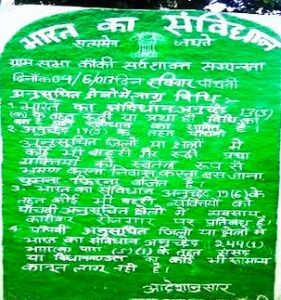 भारत का संविधान
सत्यमेव जयते
ग्राम सभा की सर्वशक्ति सम्पन्नता
दिनांक 04/6/017 दिन रविवार पाँचवी
अनुसूचित क्षेत्रों में लागू विधि :-
1- भारत का संविधान 13(3)
(क) के तहत रूढ़ी या प्रथा ही विधि का
2- अनुच्छेद 19(5) के तहत पाँचवी
अनुसूचित जिलों या क्षेत्रों में
कोई भी बाहरी गैर रूढ़ी प्रथा
व्यक्तियों को स्वतंत्र रूप से
भ्रमण करना निवास करना बस जाना
घूमना फिरना वर्जित है।
3- भारत का संविधान अनुच्छेद 19(6) के
तहत कोई भी बाहरी व्यक्तियों को
पाँचवी अनुसूचित क्षेत्रों में व्यवसाय
कारोबार रोजगार पर प्रतिबंध है।
4- पाँचवी अनुसूचित जिलों या क्षेत्रों में
भारत का संविधान अनुच्छेद 244(1)
भाग (ख) पारा (5)(1) के तहत संसद
या विधानमंडल का कोई भी सामान्य
कानून लागू नहीं है।
आदेशानुसार